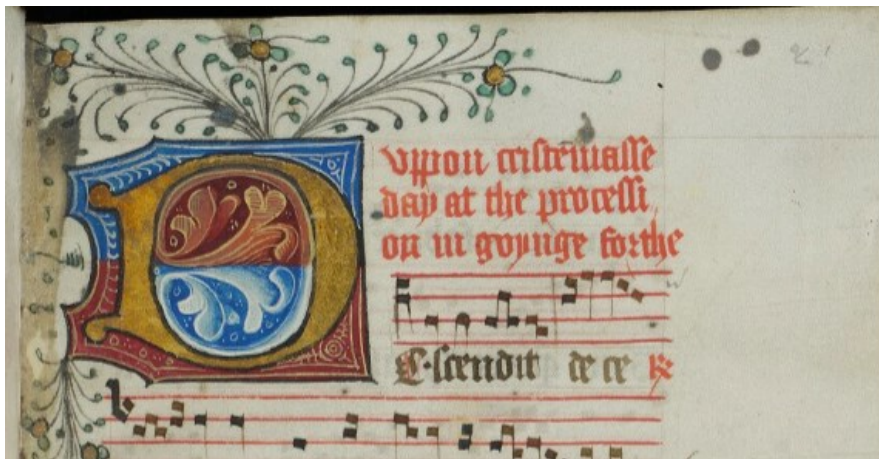 Vppon cristemasse
day at the processi
on in goynge forthe
D E·scendit de ce R̷